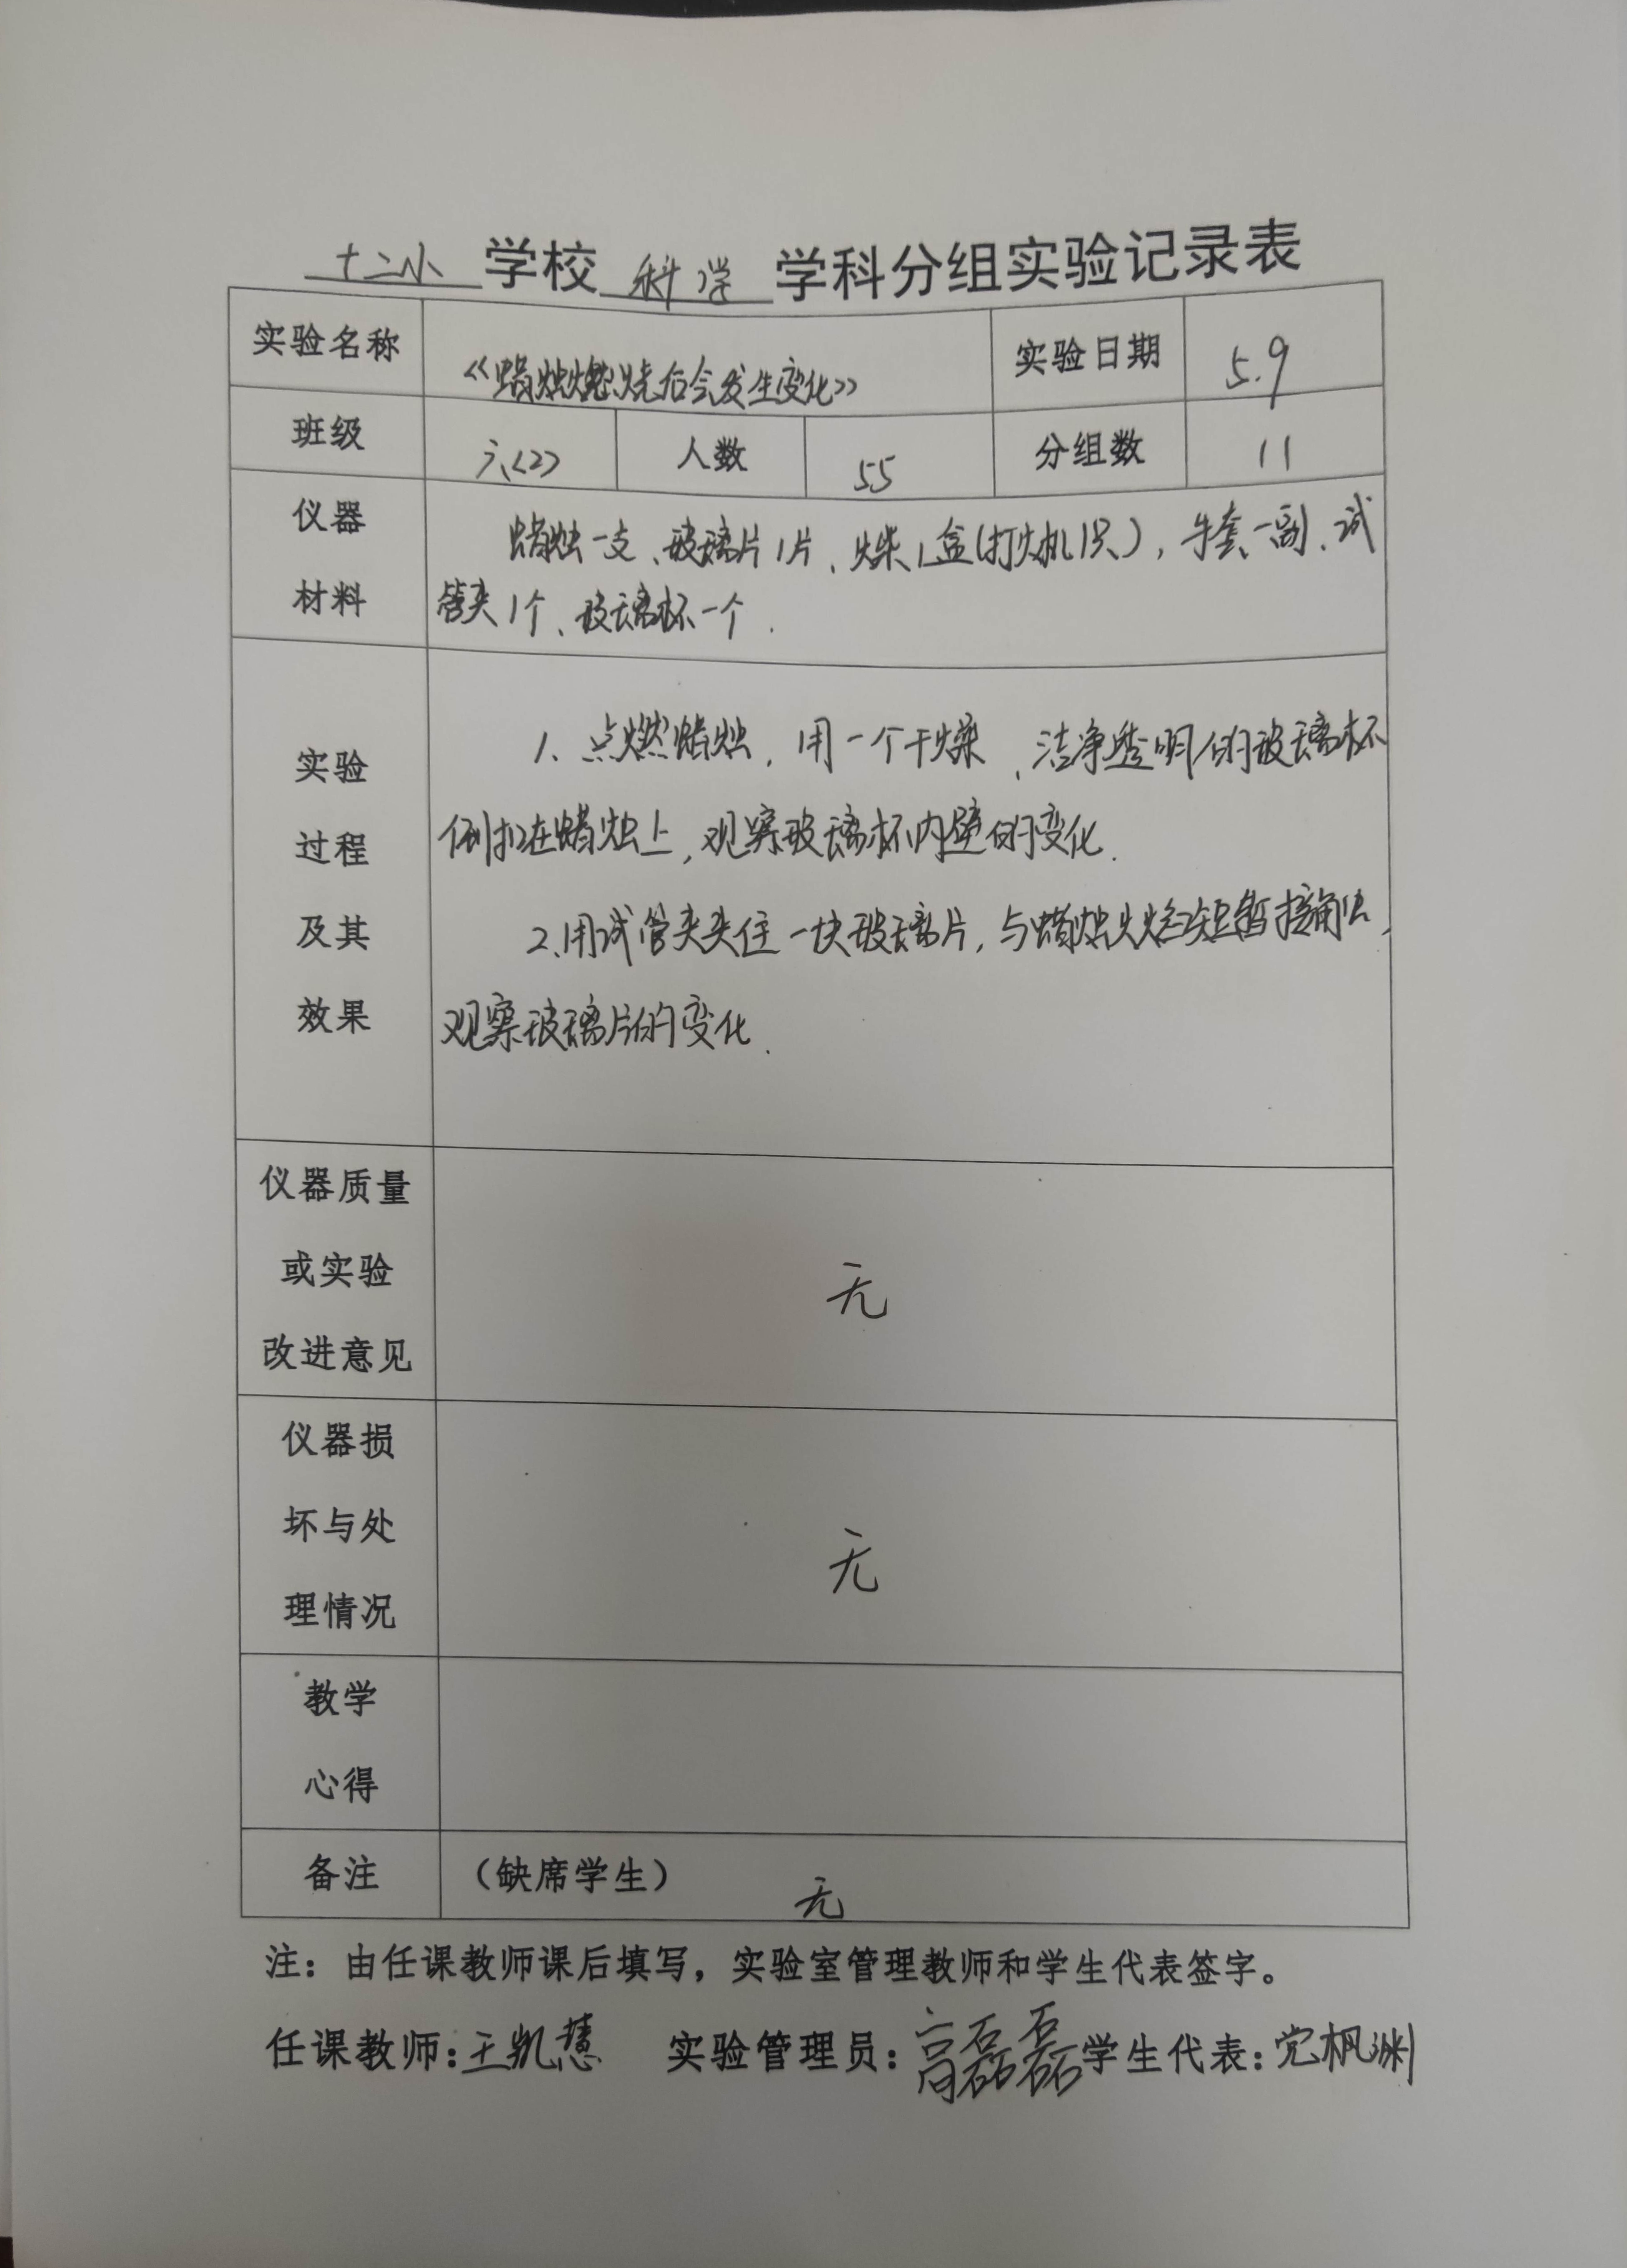 十二小 学校 科学 学科分组实验记录表
实验名称 《蜡烛燃烧后会发生变化》 实验日期 5.9
班级 六<2> 人数 55 分组数 11
仪器
材料
蜡烛一支、玻璃片1片、火柴1盒(打火机1只),手套一副、试
管夹1个、玻璃杯一个.
实验
过程
及其
效果
1、点燃蜡烛,用一个干燥、洁净透明的玻璃杯
倒扣在蜡烛上,观察玻璃杯内壁的变化.
2、用试管夹夹住一块玻璃片,与蜡烛火焰短暂接触,
观察玻璃片的变化.
仪器质量
或实验
改进意见
无
仪器损
坏与处
理情况
无
教学
心得
备注 (缺席学生) 无
注:由任课教师课后填写,实验室管理教师和学生代表签字。
任课教师:王凯慧 实验管理员:高磊磊 学生代表:党枫渊